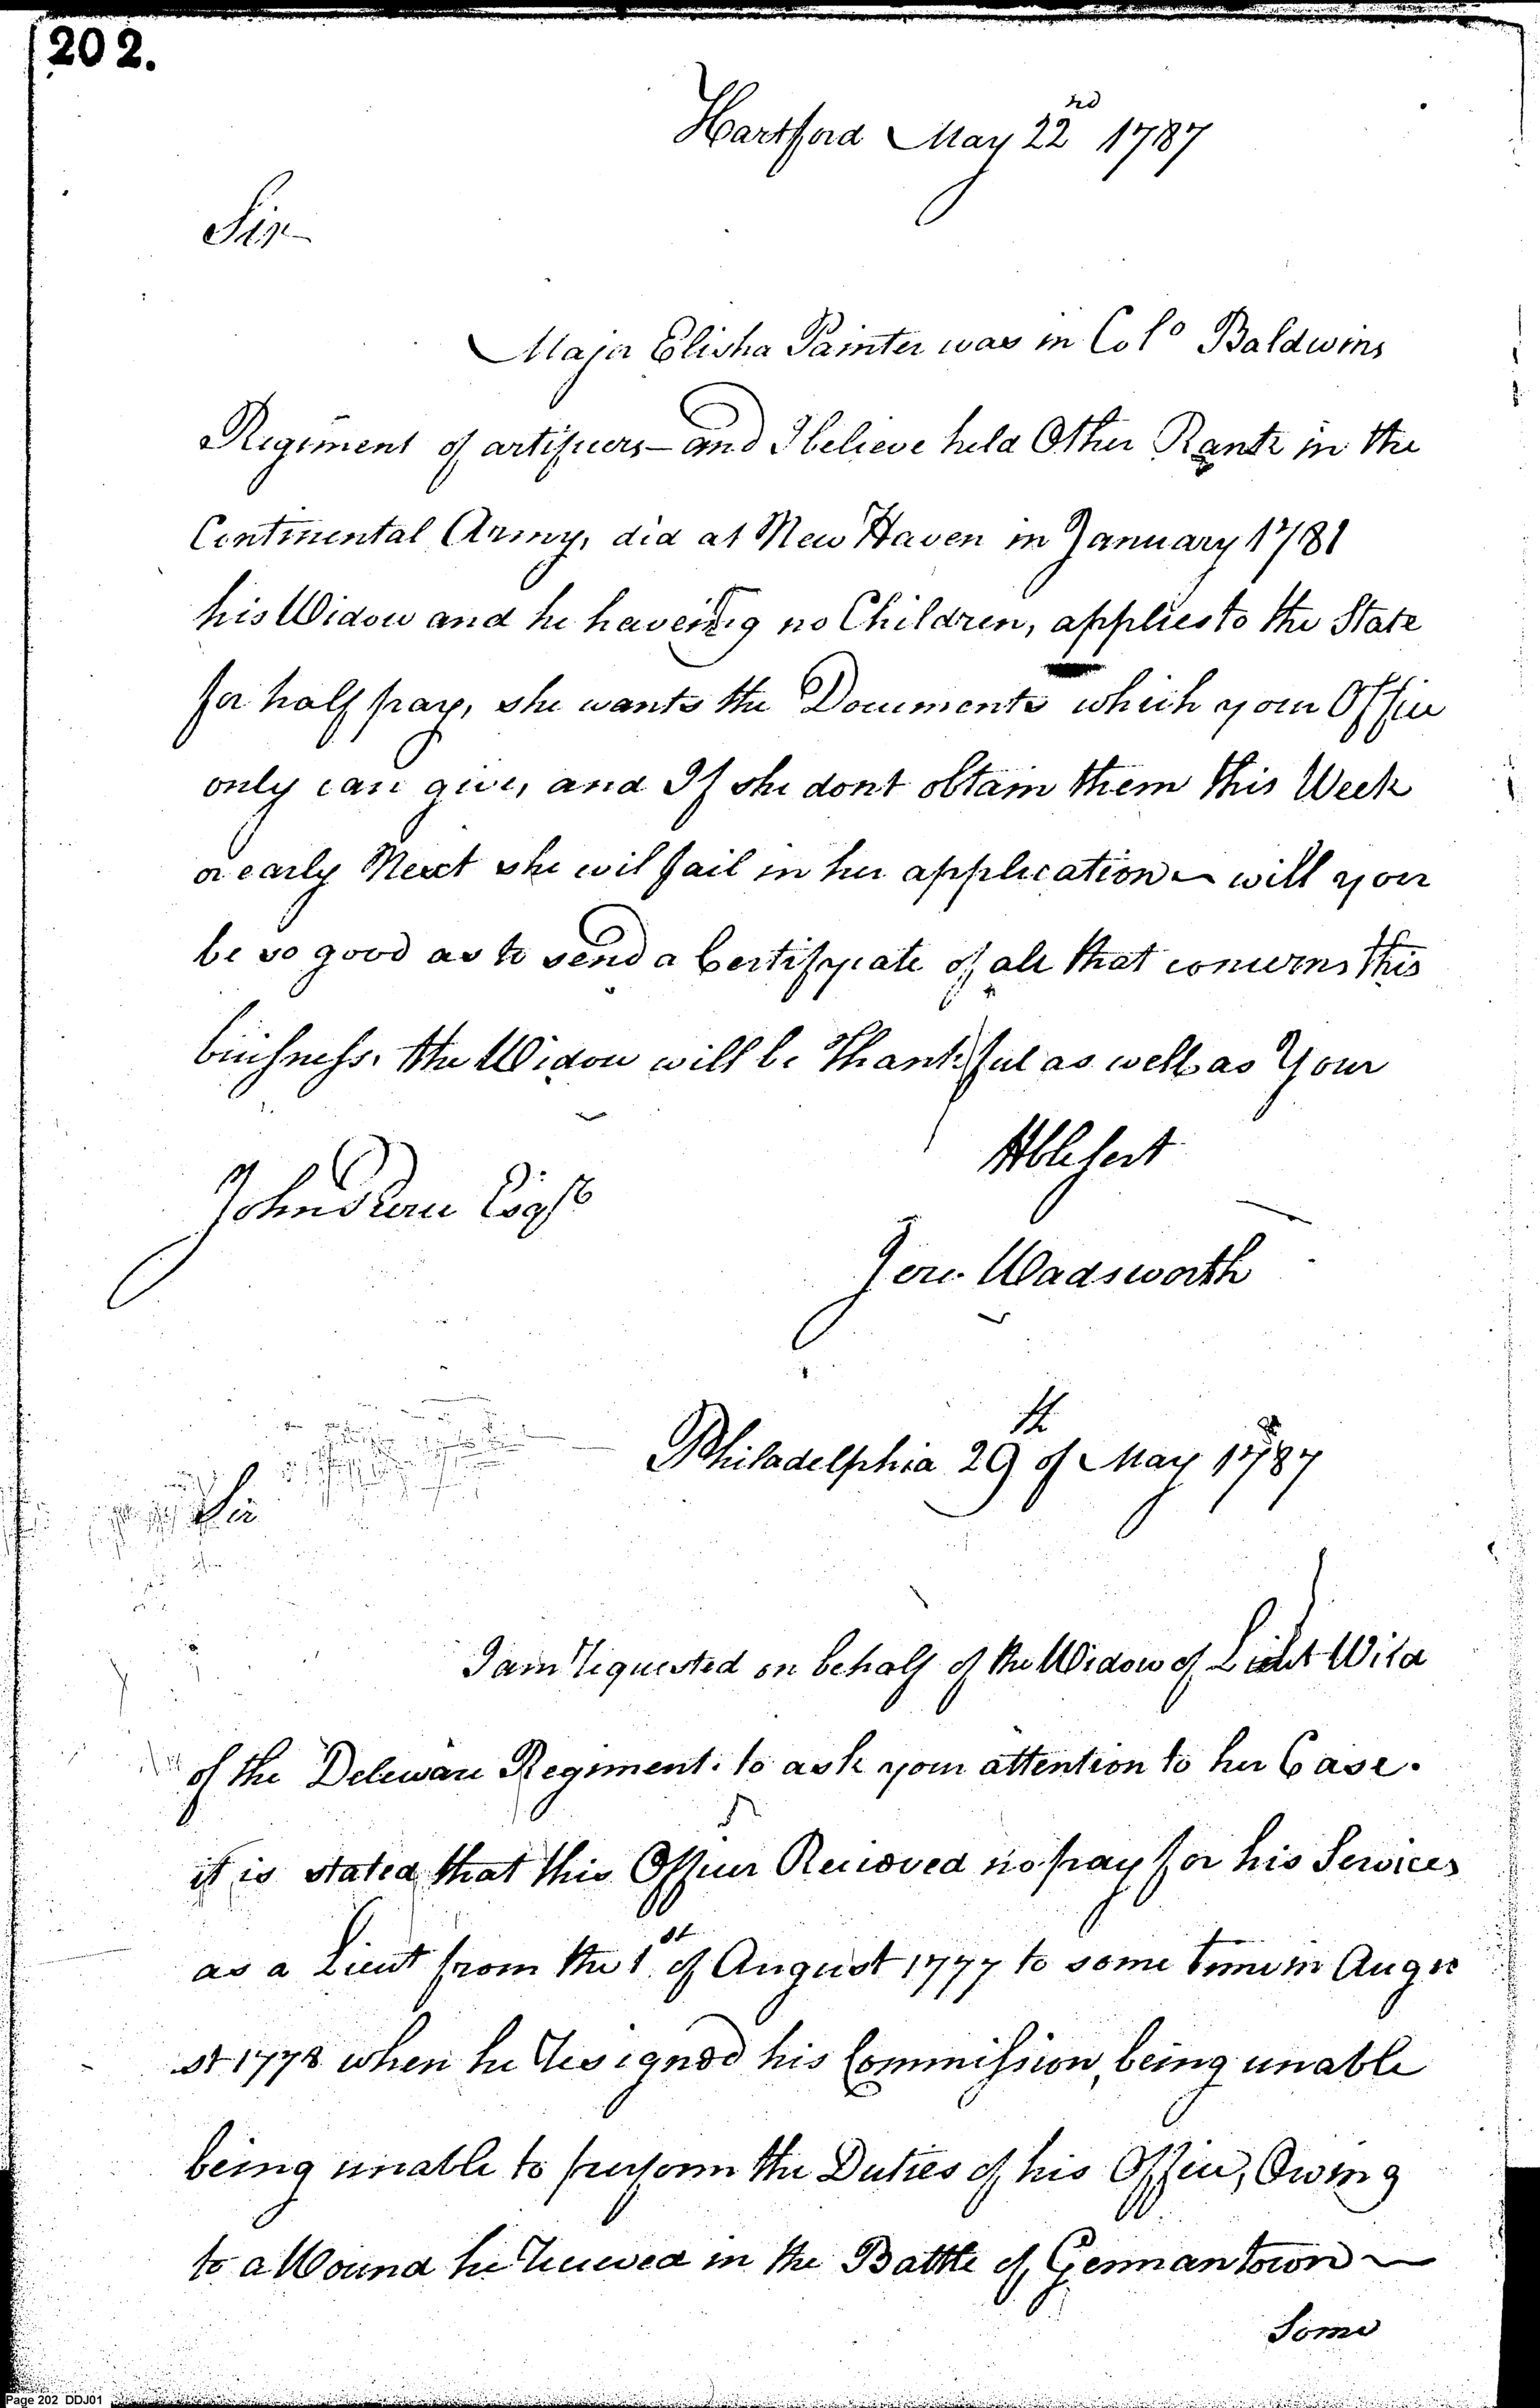 202.
Hartford May 22nd 1787
Sir
Major Elisha Painter was in Colo Baldwins
Regiment of artificers – and I believe held Other Rank in the
Continental Army, did at New Haven in January 1781
his Widow and he haveing no Children, applies to the State
for half pay, she wants the Documents which your Office
only can give, and If she dont obtain them this Week
or early Next she wil fail in her application – will you
be so good as to send a Certificate of all that concerns this
buisness. the Widow will be Thankful as well as Your
Hble sert
John Peirce Esqr
Jere. Wadsworth
Philadelphia 29th of May 1787
Sir
I am requested on behalf of the Widow of Lieut Wild
of the Deleware Regiment. to ask your attention to her Case.
it is stated that this Officer Recieved no pay for his Services
as a Lieut from the 1st of August 1777 to some time in Augu
st 1778 when he resigned his Commission, being unable
being unable to perform the Duties of his Office, Owing
to a Wound he recieved in the Battle of Germantown –
Some
Page 202 DDJ01